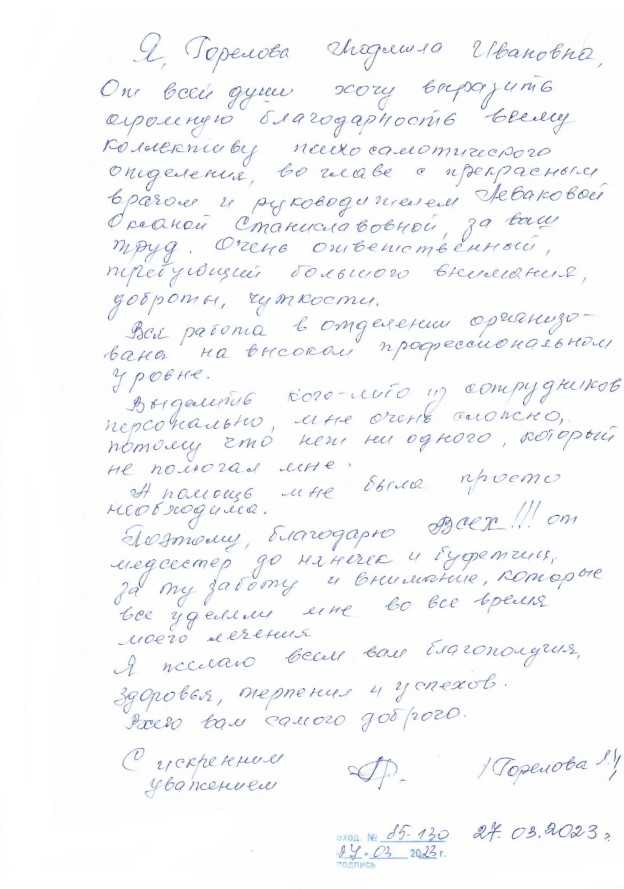 Я, Горелова Людмила Ивановна,
От всей души хочу выразить
огромную благодарность всему
коллективу психосоматического
отделения, во главе с прекрасным
врачом и руководителем Леваковой
Оксаной Станиславовной, за ваш
труд. Очень ответственный,
требующий большого внимания,
доброты, чуткости.
Вся работа в отделении организо-
вана на высоком профессиональном
уровне.
Выделить кого-либо из сотрудников
персонально, мне очень сложно,
потому что нет ни одного, который
не помогал мне.
А помощь мне была просто
необходима.
Поэтому, благодарю Всех!!! от
медсестер до нянечек и буфетчиц,
за ту заботу и внимание, которые
все уделяли мне во все время
моего лечения
Я желаю всем вам благополучия,
здоровья, терпения и успехов.
Всего вам самого доброго.
С искренним
уважением /Горелова Л.И/
вход. № 85-130 27.03.2023 г.
27.03 2023 г.
подпись